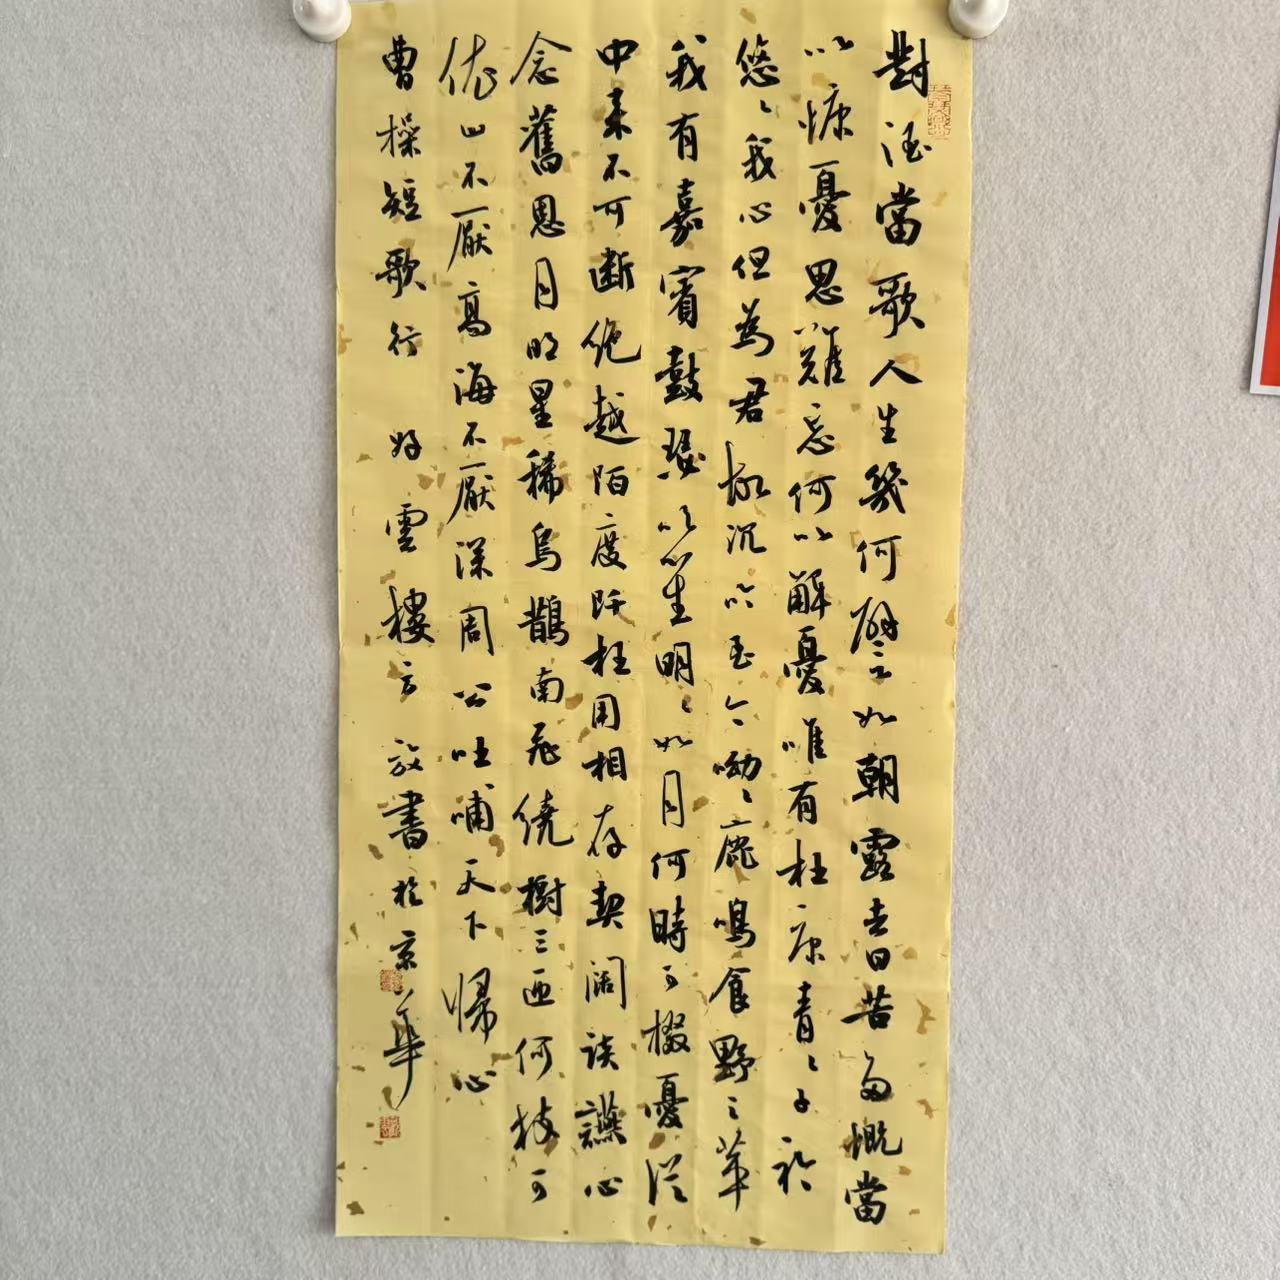 對酒當歌人生幾何譬如朝露去日苦多慨當
以慷憂思難忘何以解憂唯有杜康青〻子衿
悠〻我心但為君故沉吟至今呦〻鹿鳴食野之苹
我有嘉賓鼓瑟吹笙明〻如月何時可掇憂從
中來不可断絕越陌度阡枉用相存契闊談讌心
念舊恩月明星稀烏鵲南飛繞樹三匝何枝可
依山不厭高海不厭深周公吐哺天下歸心
曹操短歌行 好雲樓 放書於京華